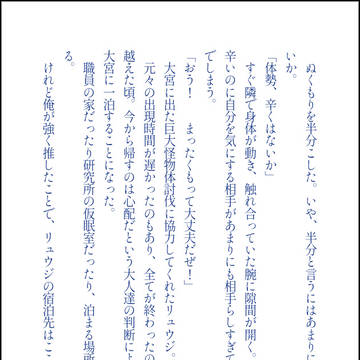 ぬくもりを半分こした。いや、半分と言うにはあまりに
いか。
「体勢、辛くはないか」
すぐ隣で身体が動き、触れ合っていた腕に隙間が開く。
辛いのに自分を気にする相手があまりにも相手らしすぎて
でしまう。
「おう！　まったくもって大丈夫だぜ！」
大宮に出た巨大怪物体討伐に協力してくれたリュウジ。
元々の出現時間が遅かったのもあり、全てが終わったの
越えた頃。今から帰すのは心配だという大人達の判断によ
大宮に一泊することになった。
職員の家だったり研究所の仮眠室だったり、泊まる場所
る。
けれど俺が強く推したことで、リュウジの宿泊先はこ